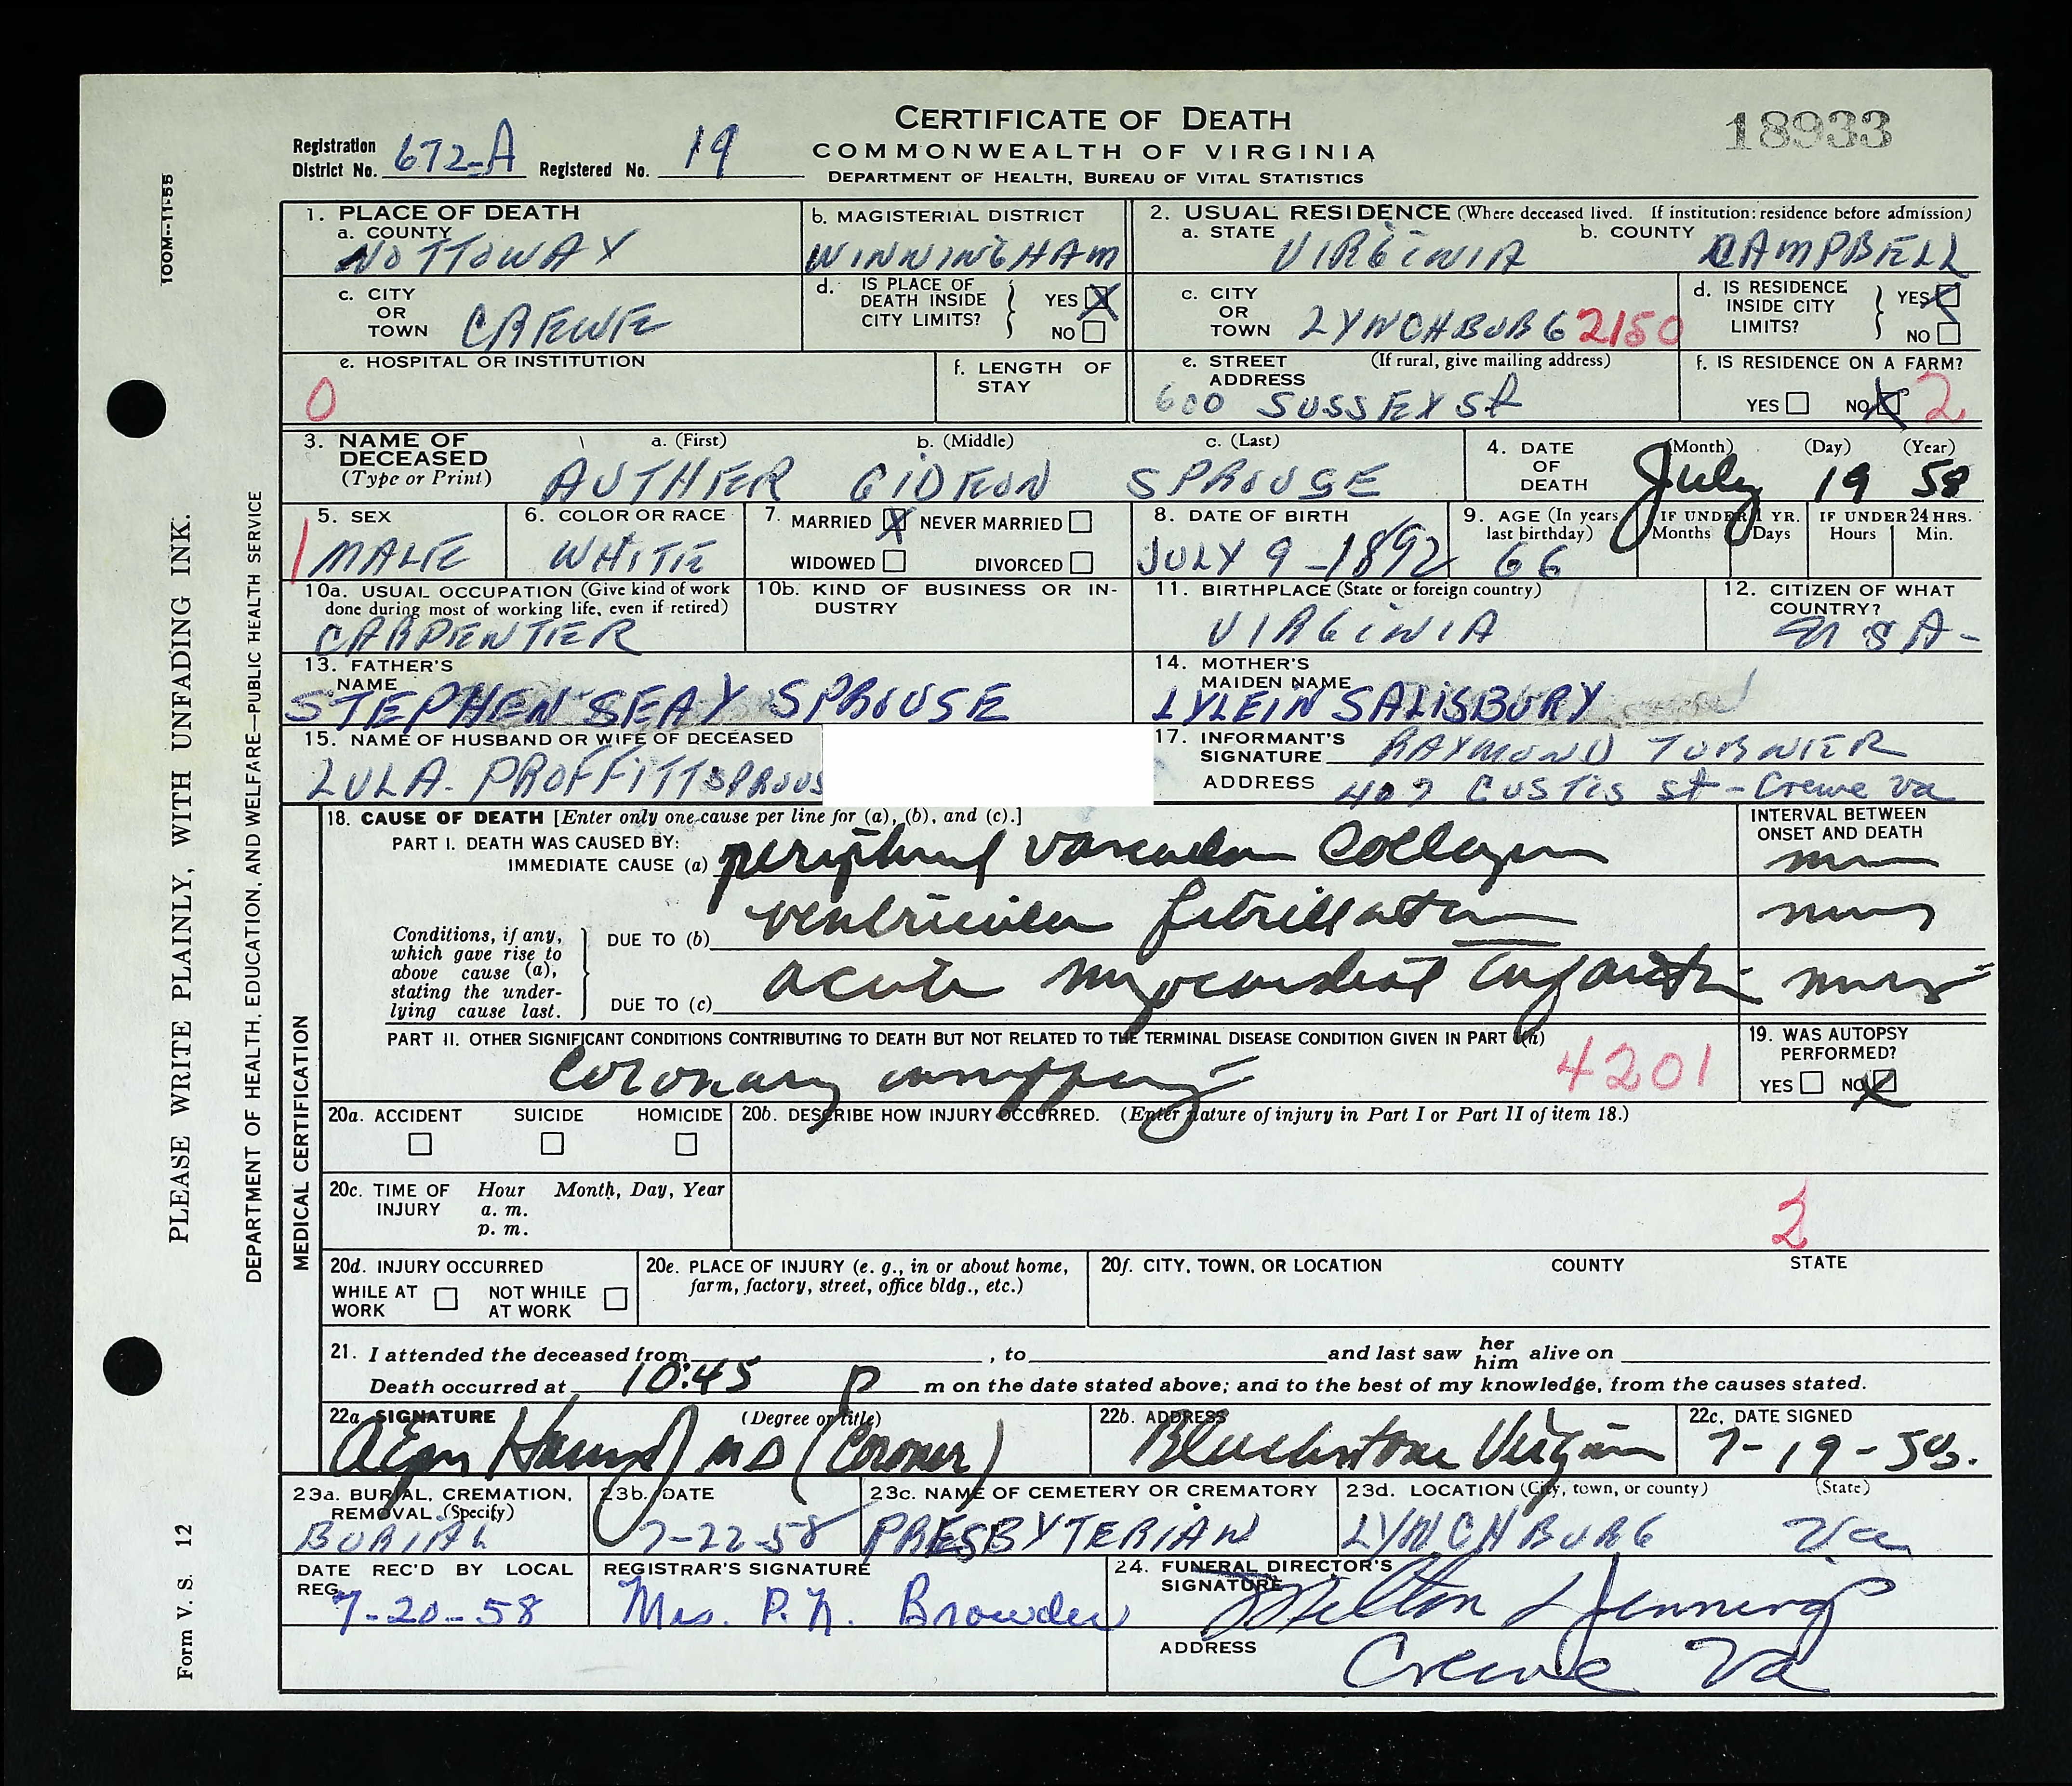 CERTIFICATE OF DEATH
COMMONWEALTH OF VIRGINIA
DEPARTMENT OF HEALTH, BUREAU OF VITAL STATISTICS
18933
Registration District No. 672-A Registered No. 19
100M--11-55
PLEASE WRITE PLAINLY, WITH UNFADING INK.
DEPARTMENT OF HEALTH, EDUCATION, AND WELFARE—PUBLIC HEALTH SERVICE
Form V. S. 12
1. PLACE OF DEATH
a. COUNTY
NOTTOWAY
b. MAGISTERIAL DISTRICT
WINNINGHAM
2. USUAL RESIDENCE (Where deceased lived. If institution: residence before admission)
a. STATE VIRGINIA b. COUNTY CAMPBELL
c. CITY OR TOWN CREWE
d. IS PLACE OF DEATH INSIDE CITY LIMITS? YES X NO
c. CITY OR TOWN LYNCHBURG 2150
d. IS RESIDENCE INSIDE CITY LIMITS? YES X NO
e. HOSPITAL OR INSTITUTION
0
f. LENGTH OF STAY
e. STREET ADDRESS (If rural, give mailing address)
600 SUSSEX St
f. IS RESIDENCE ON A FARM?
YES NO X 2
3. NAME OF DECEASED (Type or Print)
a. (First) b. (Middle) c. (Last)
AUTHER GIDEON SPROUSE
4. DATE OF DEATH (Month) (Day) (Year)
July 19 58
5. SEX
1 MALE
6. COLOR OR RACE
WHITE
7. MARRIED X NEVER MARRIED
WIDOWED DIVORCED
8. DATE OF BIRTH
JULY 9-1892
9. AGE (In years last birthday) 66
IF UNDER 1 YR. Months Days
IF UNDER 24 HRS. Hours Min.
10a. USUAL OCCUPATION (Give kind of work done during most of working life, even if retired)
CARPENTER
10b. KIND OF BUSINESS OR INDUSTRY
11. BIRTHPLACE (State or foreign country)
VIRGINIA
12. CITIZEN OF WHAT COUNTRY?
USA-
13. FATHER'S NAME
STEPHEN SEAY SPROUSE
14. MOTHER'S MAIDEN NAME
LYLEIN SALISBURY
15. NAME OF HUSBAND OR WIFE OF DECEASED
LULA. PROFFITT SPROUS
17. INFORMANT'S SIGNATURE RAYMOND TURNER
ADDRESS 407 CUSTIS St - Crewe Va
MEDICAL CERTIFICATION
18. CAUSE OF DEATH [Enter only one cause per line for (a), (b), and (c).]
INTERVAL BETWEEN ONSET AND DEATH
PART I. DEATH WAS CAUSED BY:
IMMEDIATE CAUSE (a) peripheral vascular collapse
Conditions, if any, which gave rise to above cause (a), stating the underlying cause last.
DUE TO (b) ventricular fibrillation
DUE TO (c) acute myocardial infarction
PART II. OTHER SIGNIFICANT CONDITIONS CONTRIBUTING TO DEATH BUT NOT RELATED TO THE TERMINAL DISEASE CONDITION GIVEN IN PART I(a)
Coronary
4201
19. WAS AUTOPSY PERFORMED?
YES NO X
20a. ACCIDENT SUICIDE HOMICIDE
20b. DESCRIBE HOW INJURY OCCURRED. (Enter nature of injury in Part I or Part II of item 18.)
20c. TIME OF INJURY Hour Month, Day, Year
a. m.
p. m.
2
20d. INJURY OCCURRED
WHILE AT WORK NOT WHILE AT WORK
20e. PLACE OF INJURY (e. g., in or about home, farm, factory, street, office bldg., etc.)
20f. CITY, TOWN, OR LOCATION COUNTY STATE
21. I attended the deceased from , to and last saw her him alive on
Death occurred at 10:45 P m on the date stated above; and to the best of my knowledge, from the causes stated.
22a. SIGNATURE (Degree or title)
MD (Coroner)
22b. ADDRESS
Blackstone Virginia
22c. DATE SIGNED
7-19-58.
23a. BURIAL, CREMATION, REMOVAL (Specify)
BURIAL
23b. DATE
7-22-58
23c. NAME OF CEMETERY OR CREMATORY
PRESBYTERIAN
23d. LOCATION (City, town, or county) (State)
LYNCHBURG Va
DATE REC'D BY LOCAL REG.
7-20-58
REGISTRAR'S SIGNATURE
Mrs. P. N. Browder
24. FUNERAL DIRECTOR'S SIGNATURE
Milton Jennings
ADDRESS
Crewe Va